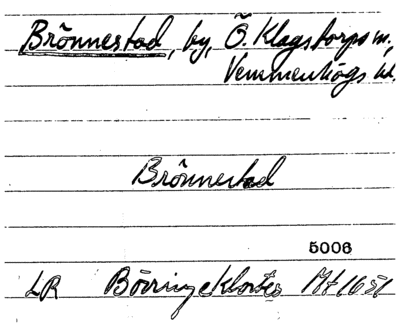 Brönnestad, by, Ö. Klagstorps sn.,
Vemmenhögs hd.
Brönnestad
5006
LR Börringekloster Mt 1651